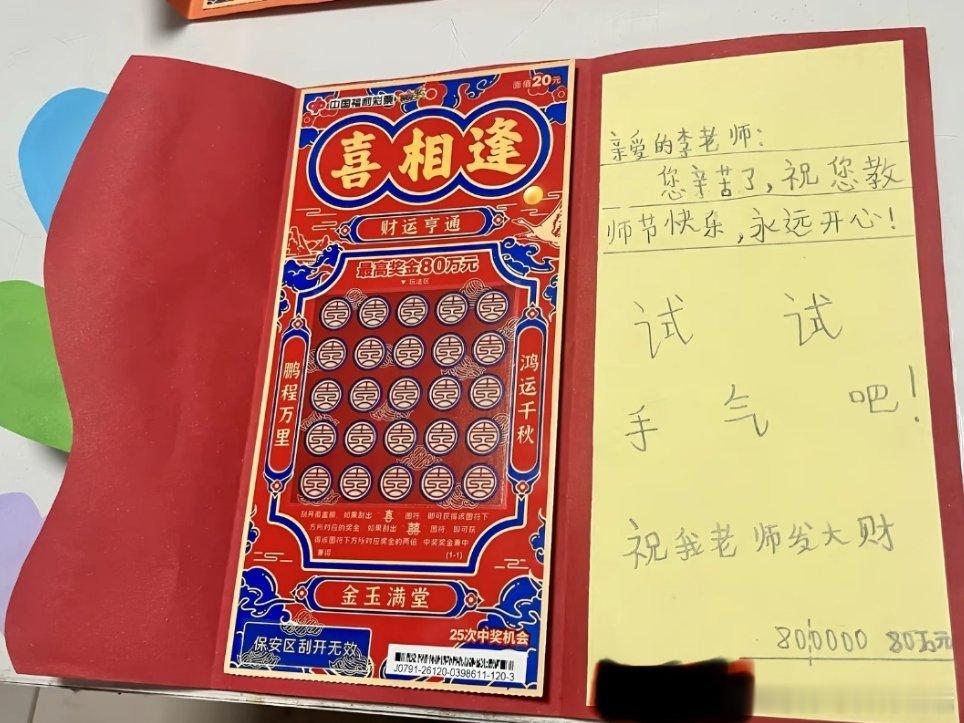 中国福利彩票
面值20元
喜相逢
财运亨通
最高奖金80万元
▼玩法区
鹏程万里
鸿运千秋
刮开覆盖膜,如果刮出 喜 图符,即可获得该图符下
方所对应的奖金;如果刮出 囍 图符,即可获
得该图符下方所对应奖金的两倍。中奖奖金兼中
兼得。
(1-1)
金玉满堂
25次中奖机会
保安区刮开无效
J0791-26120-0398611-120-3
亲爱的李老师:
您辛苦了,祝您教
师节快乐,永远开心!
试试
手气吧!
祝我老师发大财
800000 80万元